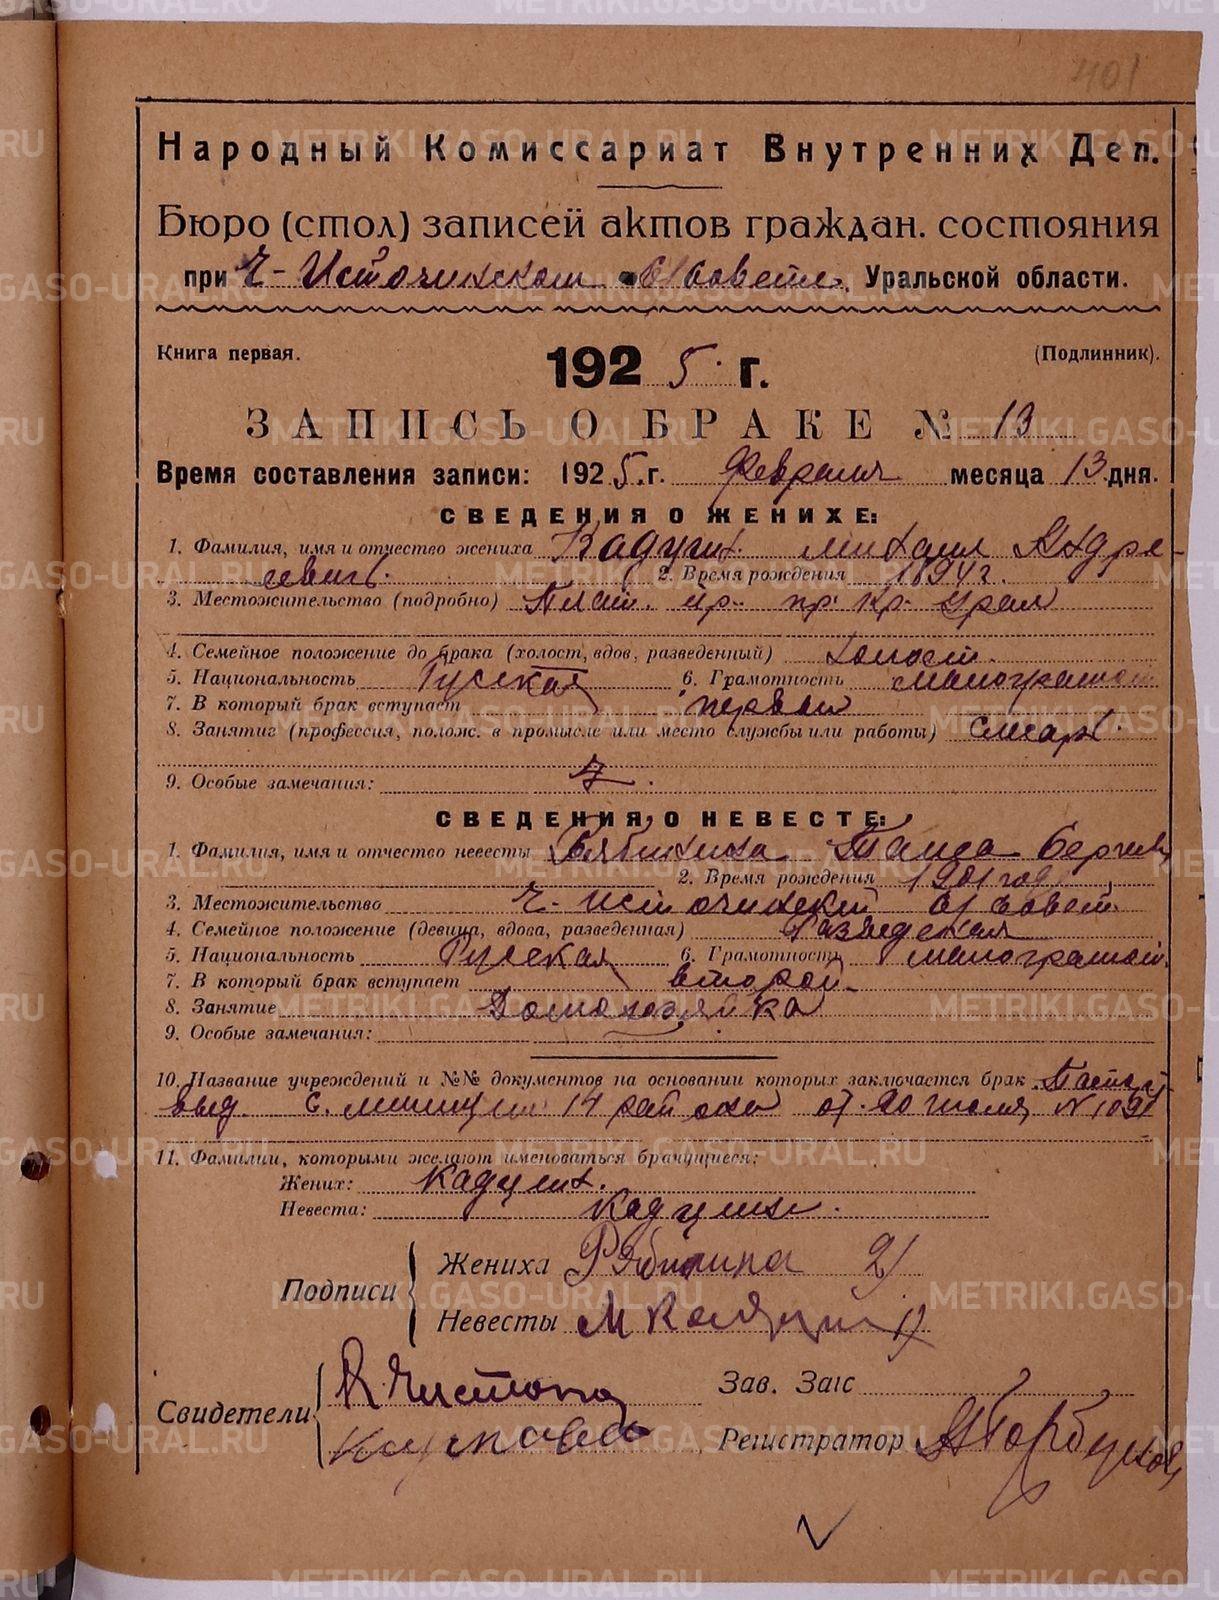 401
Народный Комиссариат Внутренних Дел.
Бюро (стол) записей актов граждан. состояния
при Ч-Источинском Уральской области.
Книга первая. 1925 г. (Подлинник).
ЗАПИСЬ О БРАКЕ № 13
Время составления записи: 1925 г. Февраля месяца 13 дня.
СВЕДЕНИЯ О ЖЕНИХЕ:
1. Фамилия, имя и отчество жениха Кадушн. Михаил Андре-
евич. 2. Время рождения 1894 г.
3. Местожительство (подробно) пр. Кр. Урал
4. Семейное положение до брака (холост, вдов, разведенный) Холост.
5. Национальность Русская 6. Грамотность малограмот
7. В который брак вступает первый
8. Занятие (профессия, полож. в промысле или место службы или работы)
9. Особые замечания:
СВЕДЕНИЯ О НЕВЕСТЕ:
1. Фамилия, имя и отчество невесты Рябинина Таиса Сергеев
2. Время рождения 1901 года
3. Местожительство Ч-источинский с/совет.
4. Семейное положение (девица, вдова, разведенная) Разведеная
5. Национальность Русская 6. Грамотность малограмот.
7. В который брак вступает второй
8. Занятие Домохозяйка
9. Особые замечания:
10. Название учреждений и №№ документов на основании которых заключается брак
выд. С. милиции 14 района от 20 июля N
11. Фамилии, которыми желают именоваться брачущиеся:
Жених:
Невеста:
Подписи
Жениха Рябинина 2)
Невесты М 1)
Свидетели
Зав. Загс
Регистратор